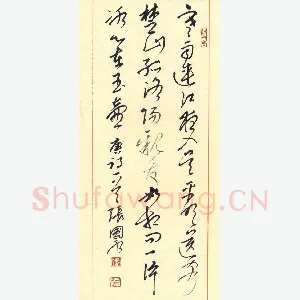 寒雨连江夜入吴平明送客
楚山孤洛阳亲友如相问一片
冰心在玉壶 唐诗一首 张国
Shufawang.CN